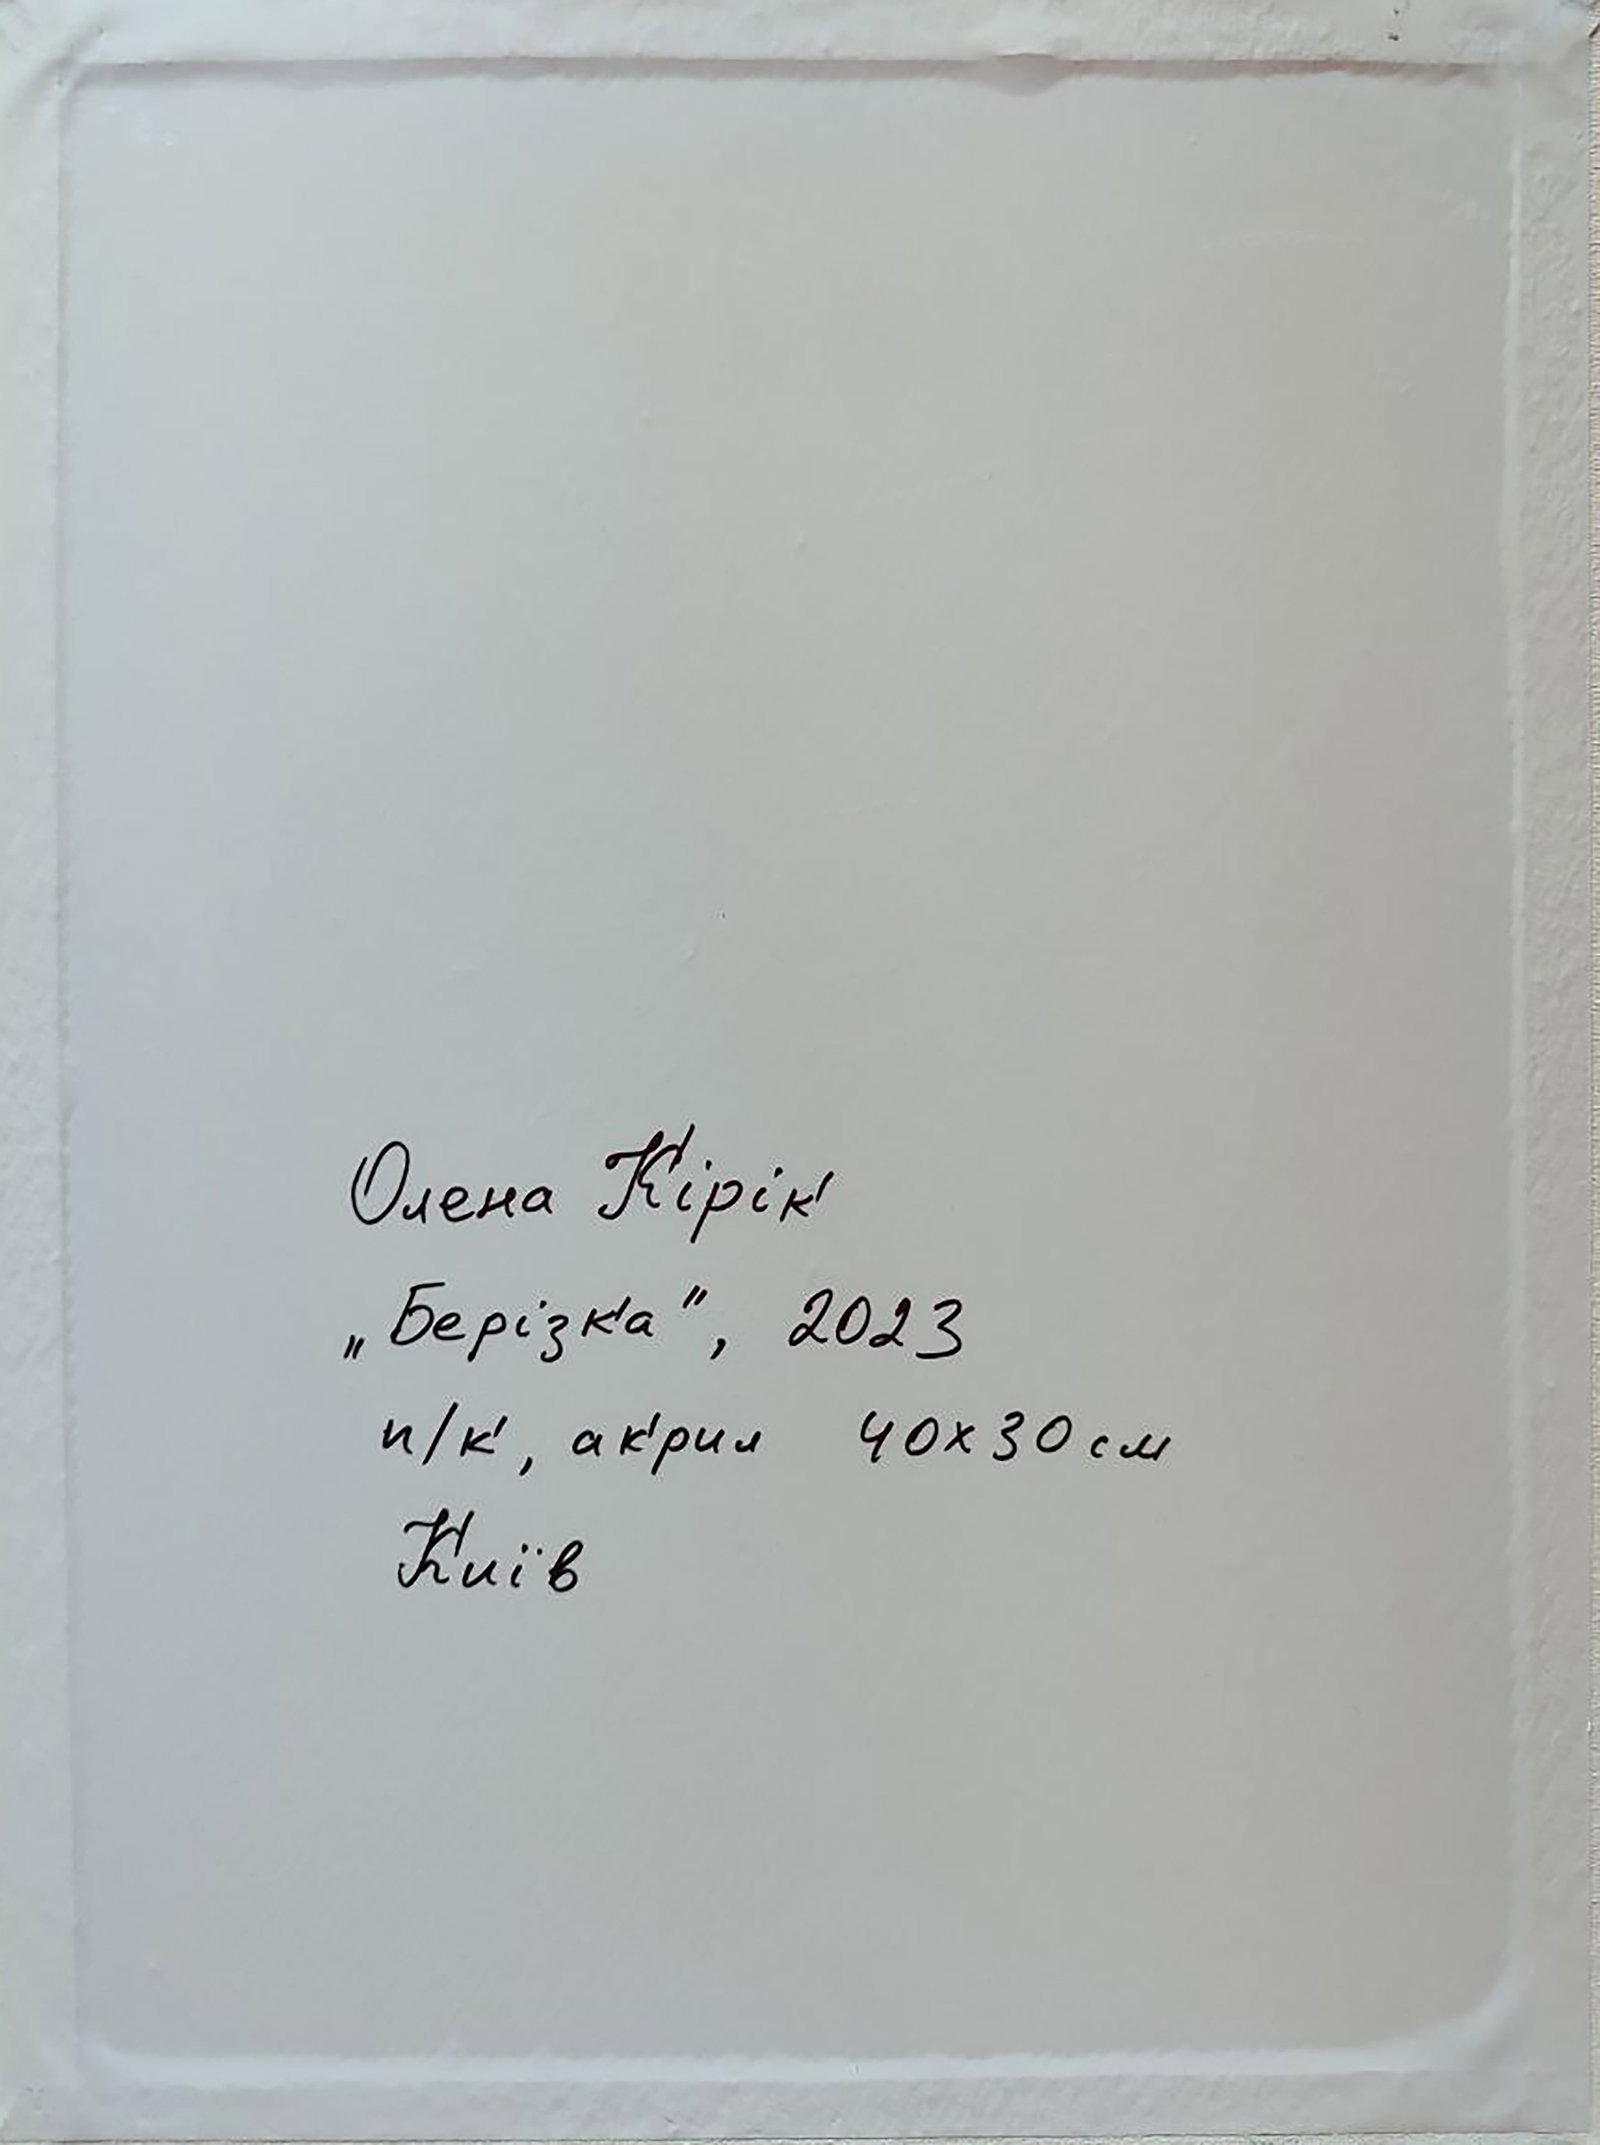 Олена Кірік
„Берізка", 2023
п/к, акрил 40х30см
Київ